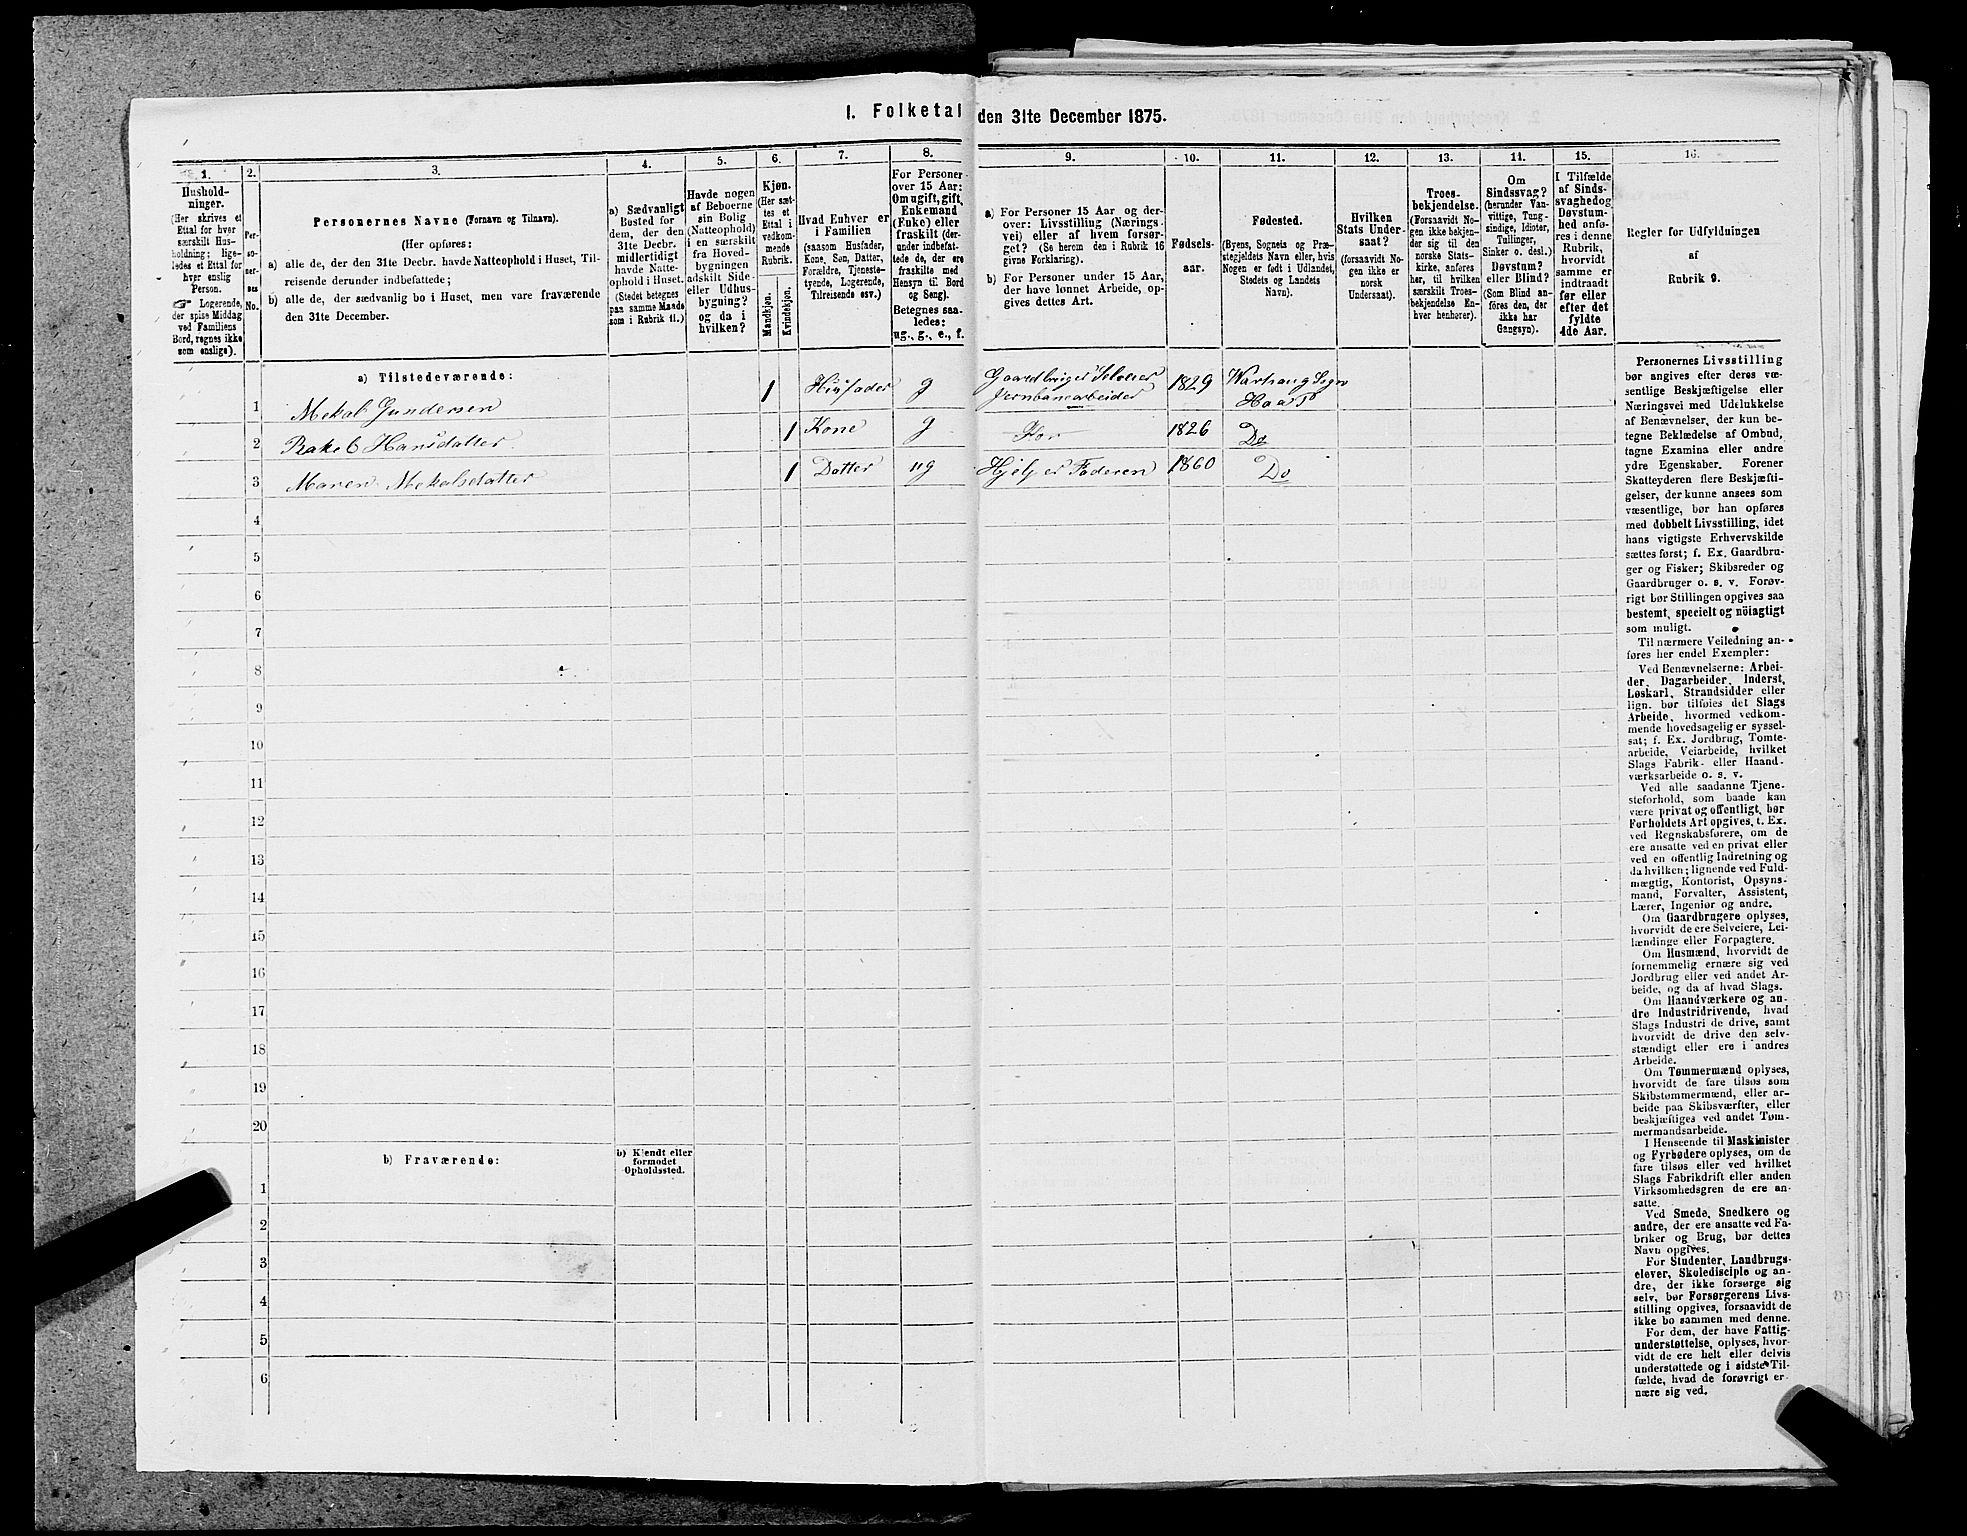 I. Folketal den 31te December 1875.
1.
Hushold-
ninger.
(Her skrives et
Ettal for hver
særskilt Hus-
holdning; lige-
ledes et Ettal for
hver enslig
Person.
☞ Logerende,
der spise Middag
ved Familiens
Bord, regnes ikke
som enslige).
2.
Per-
so-
ner-
nes
No.
3.
Personernes Navne (Fornavn og Tilnavn).
(Her opføres:
a) alle de, der den 31te Decbr. havde Natteophold i Huset, Til-
reisende derunder indbefattede;
b) alle de, der sædvanlig bo i Huset, men vare fraværende
den 31te December.
4.
a) Sædvanligt
Bosted for
dem, der den
31te Decbr.
midlertidigt
havde Natte-
ophold i Huset.
(Stedet betegnes
paa samme Maade
som i Rubrik 11.)
5.
Havde nogen
af Beboerne
sin Bolig
(Natteophold)
i en særskilt
fra Hoved-
bygningen
adskilt Side-
eller Udhus-
bygning?
og da i
hvilken?
6.
Kjøn.
(Her sæt-
tes et
Ettal i
vedkom-
mende
Rubrik.
Mandkjøn.
Kvindekjøn.
7.
Hvad Enhver er
i Familien
(saasom Husfader,
Kone, Søn, Datter,
Forældre, Tjeneste-
tyende, Logerende,
Tilreisende osv.)
8.
For Personer
over 15 Aar:
Om ugift, gift,
Enkemand
(Enke) eller
fraskilt (der-
under indbefat-
tede de, der ere
fraskilte med
Hensyn til Bord
og Seng).
Betegnes saa-
ledes:
ug., g., e., f.
9.
a) For Personer 15 Aar og der-
over: Livsstilling (Nærings-
vei) eller af hvem forsør-
get? (Se herom den i Rubrik 16
givne Forklaring).
b) For Personer under 15 Aar,
der have lønnet Arbeide, op-
gives dettes Art.
10.
Fødsels-
aar.
11.
Fødested.
(Byens, Sognets og Præ-
stegjeldets Navn eller, hvis
Nogen er født i Udlandet,
Stedets og Landets
Navn).
12.
Hvilken
Stats Under-
saat?
(forsaavidt No-
gen ikke er
norsk
Undersaat).
13.
Troes-
bekjendelse.
(Forsaavidt No-
gen ikke bekjen-
der sig til den
norske Stats-
kirke, anføres
her, til hvilken
særskilt Troes-
bekjendelse En-
hver henhører).
14.
Om
Sindssvag?
(herunder Van-
vittige, Tung-
sindige, Idioter,
Tullinger,
Sinker o. desl.).
Døvstum?
eller Blind?
(Som Blind an-
føres den, der
ikke har
Gangsyn).
15.
I Tilfælde
af Sinds-
svaghed og
Døvstum-
hed anfø-
res i denne
Rubrik,
hvorvidt
samme er
indtraadt
før eller
efter det
fyldte
4de Aar.
16.
Regler for Udfyldningen
af
Rubrik 9.
a) Tilstedeværende:
1 Mekal Gundersen 1 Husfader g Gaardbruger Seleier Jernbanearbeider 1829 Warhaug Sogn Haa P
2 Rakel Hansdatter 1 Kone g 1826 Do
3 Maren Mekalsdatter 1 Datter ug Hjelper Faderen 1860 Do
4
5
6
7
8
9
10
11
12
13
14
15
16
17
18
19
20
b) Fraværende:
b) Kjendt eller
formodet
Opholdssted.
1
2
3
4
5
6
Personernes Livsstilling
bør angives efter deres væ-
sentlige Beskjæftigelse eller
Næringsvei med Udelukkelse
af Benævnelser, der kun be-
tegne Beklædelse af Ombud,
tagne Examina eller andre
ydre Egenskaber. Forener
Skatteyderen flere Beskjæfti-
gelser, der kunne ansees som
væsentlige, bør han opføres
med dobbelt Livsstilling, idet
hans vigtigste Erhvervskilde
sættes først; f. Ex. Gaardbru-
ger og Fisker; Skibsreder og
Gaardbruger o. s. v. Forøv-
rigt bør Stillingen opgives saa
bestemt, specielt og nöiagtigt
som muligt.
Til nærmere Veiledning an-
føres her endel Exempler:
Ved Benævnelserne: Arbei-
der, Dagarbeider, Inderst,
Løskarl, Strandsidder eller
lign. bør tilføies det Slags
Arbeide, hvormed vedkom-
mende hovedsagelig er syssel-
sat; f. Ex. Jordbrug, Tomte-
arbeide, Veiarbeide, hvilket
Slags Fabrik- eller Haand-
værksarbeide o. s. v.
Ved alle saadanne Tjene-
steforhold, som baade kan
være privat og offentligt, bør
Forholdets Art opgives, t. Ex.
ved Regnskabsførere, om de
ere ansatte ved en privat eller
ved en offentlig Indretning og
da hvilken; lignende ved Fuld-
mægtig, Kontorist, Opsyns-
mand, Forvalter, Assistent,
Lærer, Ingeniør og andre.
Om Gaardbrugere oplyses,
hvorvidt de ere Selveiere, Lei-
lændinge eller Forpagtere.
Om Husmænd, hvorvidt de
fornemmelig ernære sig ved
Jordbrug eller ved andet Ar-
beide, og da af hvad Slags.
Om Haandværkere og an-
dre Industridrivende, hvad
Slags Industri de drive, samt
hvorvidt de drive den selv-
stændigt eller ere i andres
Arbeide.
Om Tømmermænd oplyses,
hvorvidt de fare tilsøs som
Skibstømmermænd, eller ar-
beide paa Skibsværfter, eller
beskjæftiges ved andet Tøm-
mermandsarbeide.
I Henseende til Maskinister
og Fyrbødere oplyses, om de
fare tilsøs eller ved hvilket
Slags Fabrikdrift eller anden
Virksomhedsgren de ere an-
satte.
Ved Smede, Snedkere og
andre, der ere ansatte ved Fa-
briker og Brug, bør dettes
Navn opgives.
For Studenter, Landbrugs-
elever, Skoledisciple og an-
dre, der ikke forsørge sig
selv, bør Forsørgerens Livs-
stilling opgives, forsaavidt de
ikke bo sammen med denne.
For dem, der have Fattig-
understøttelse, oplyses, hvor-
vidt de ere helt eller delvis
understøttede og i sidste Til-
fælde, hvad de forøvrigt er-
nære sig ved.